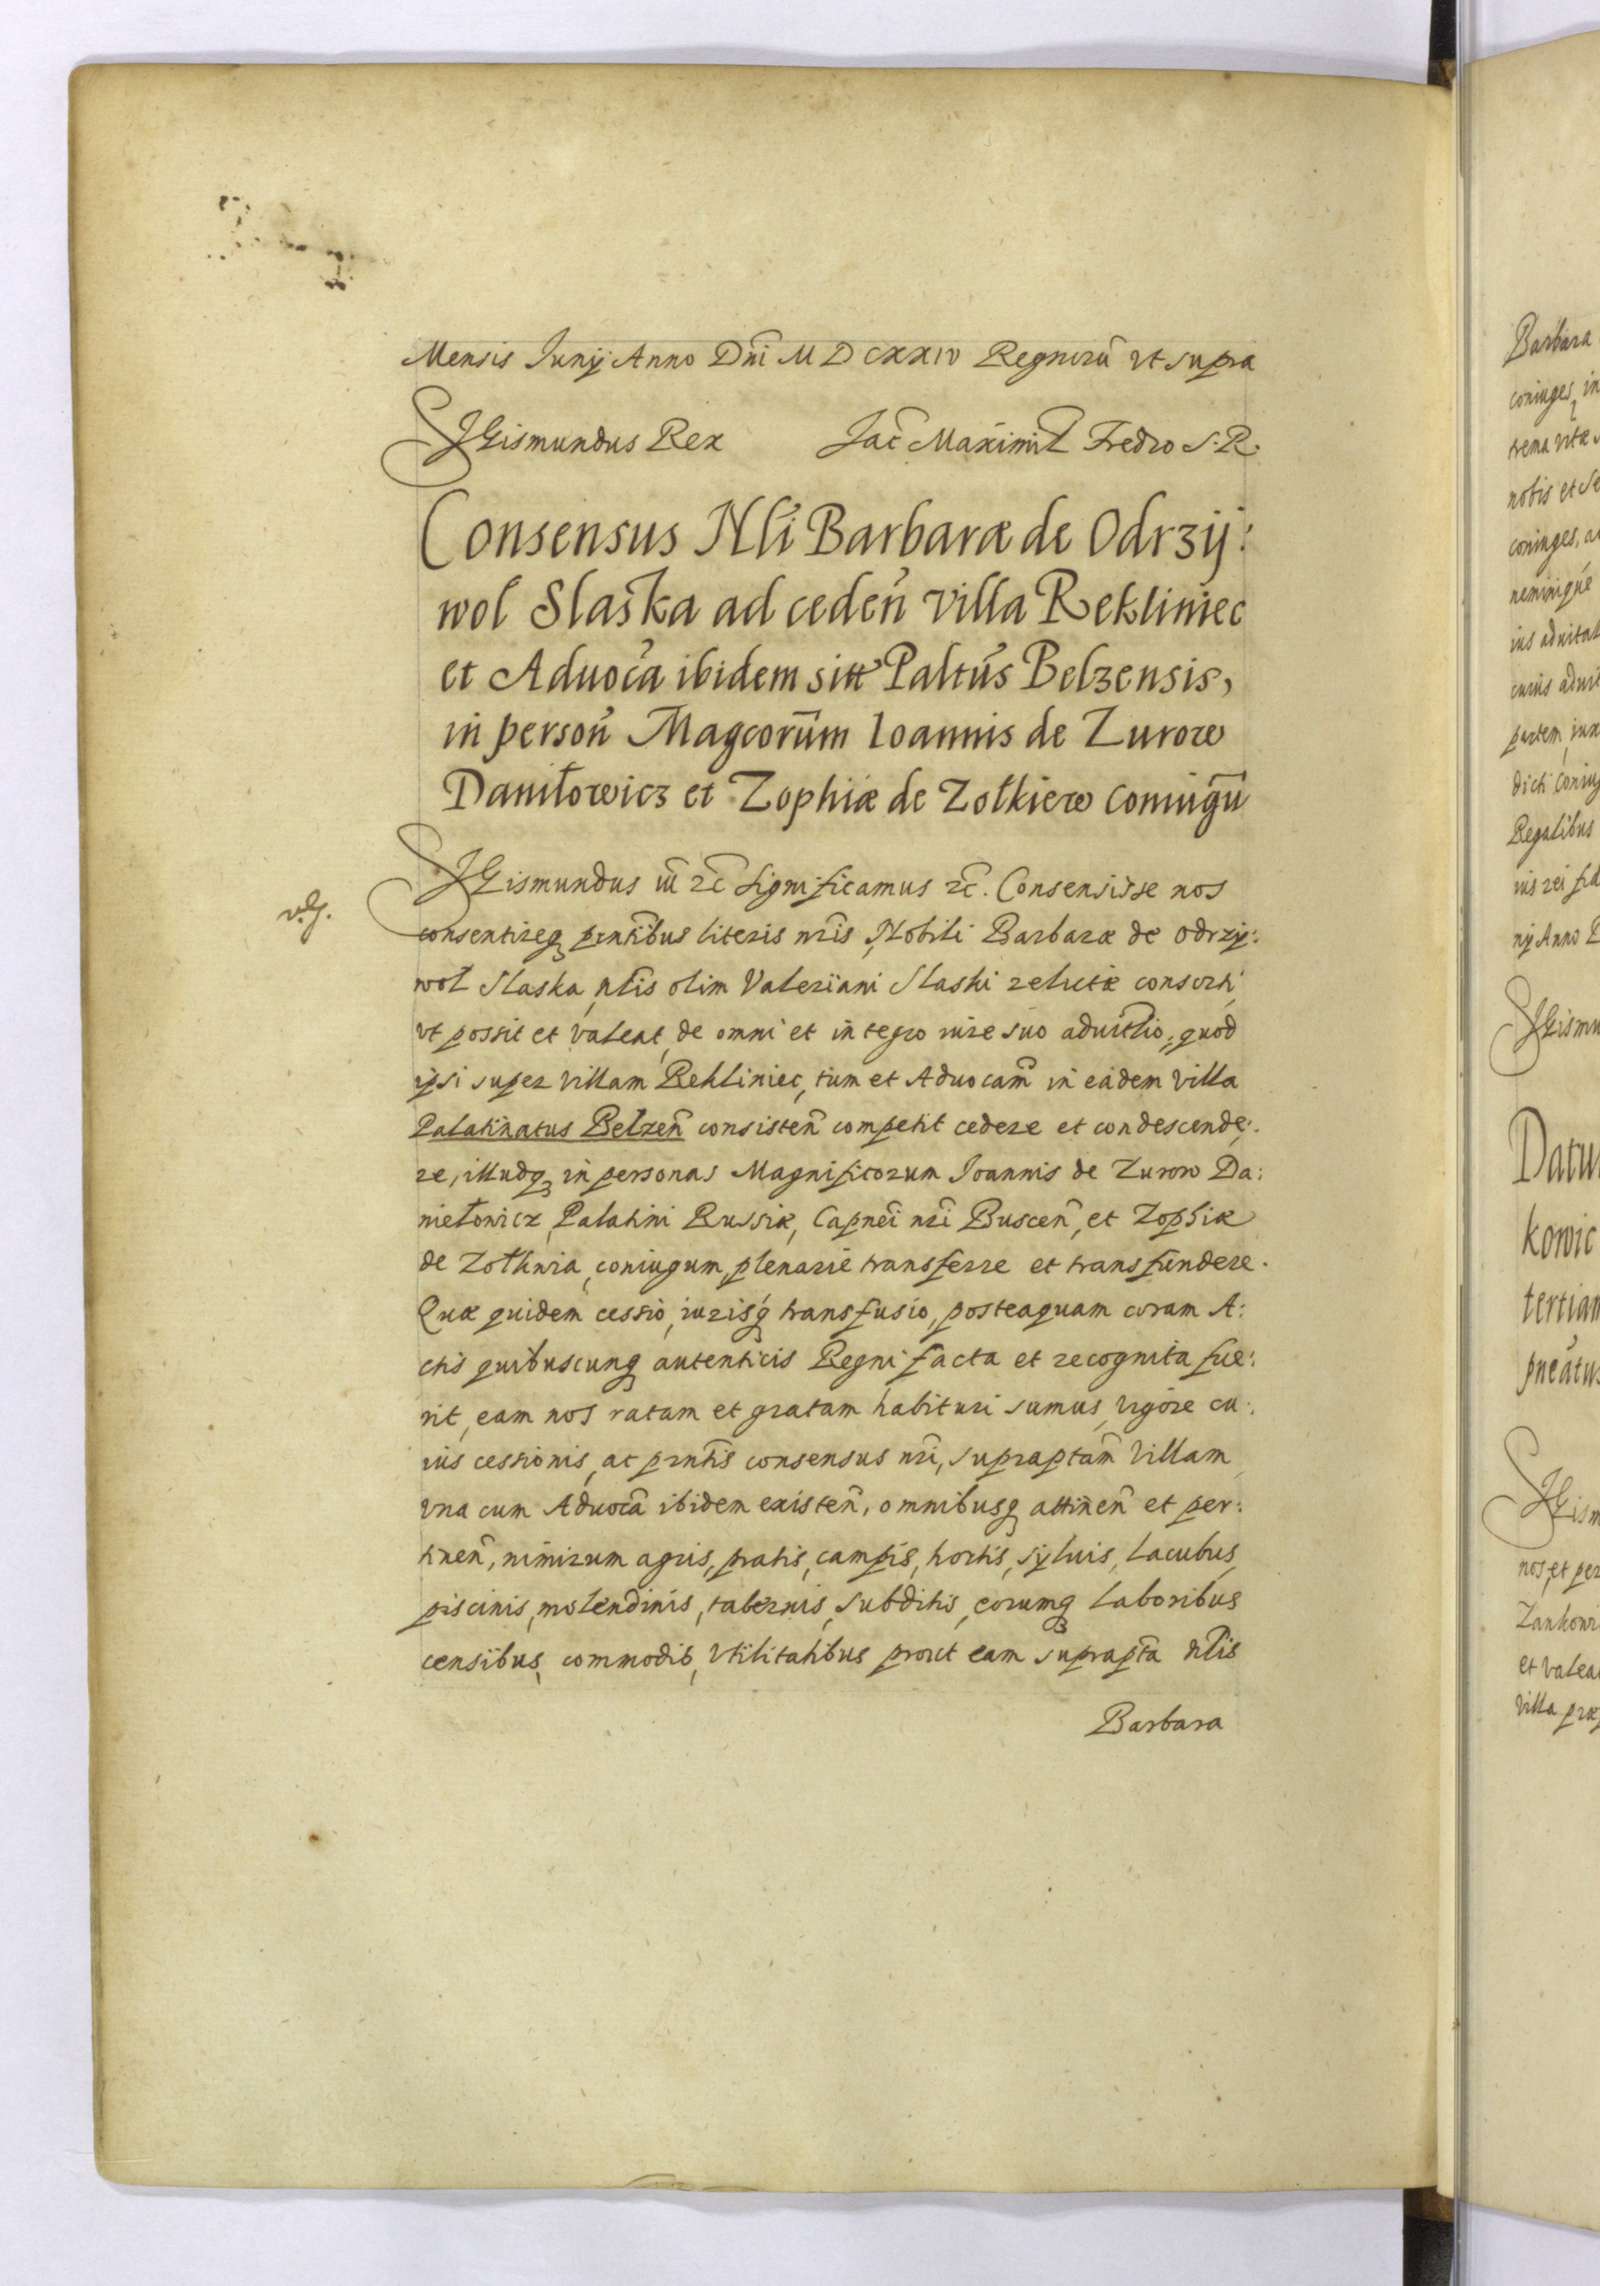 Mensis Junij Anno Dñi M D CXXIV Regnorũ vt supra
SIGismundus Rex Jac̃ Maximil̃ Fredro S. R.
Consensus Nli Barbaræ de Odrzij:
wol Slaska ad ceden̄ villa Rekliniec
et Aduoc̃a ibidem sitt Paltũs Belzensis,
in person̄ Magcorũm Ioannis de Zurow
Daniłowicz et Zophiæ de Zołkiew Coniugũ
SIGismundus iii ꝛc̃ significamus ꝛc̃. Consensisse nos
v. G.
consentireqꝫ pñtibus literis nr̃is, Nobili Barbaræ de Odrzy:
woł Slaska, nl̃is olim Valeriani Slaski relictæ consorti,
vt possit et valeat, de omni et integro iure suo aduitl̃io, quod
ipsi super villam Rekliniec, tum et Aduocam̃ in eadem villa
Palatinatus Belzen̄ consisten̄ competit cedere et condescende:
re, illudqꝫ in personas Magnificorum Joannis de Zurow Da:
niełowicz, Palatini Russiæ, Capnei nr̃i Buscen̄, et Zophiæ
de Zołkwia, coniugum, plenarie transferre et transfundere.
Quæ quidem cessio, iurisq́ transfusio, posteaquam coram A:
ctis quibuscunqꝫ autenticis Regni facta et recognita fue:
rit, eam nos ratam et gratam habituri sumus, vigore cu:
ius cessionis, ac prñtis consensus nr̃i, supraptam̃ Villam
vna cum Aduoc̃a ibidem existen̄, omnibusqꝫ attinen̄ et per:
tinen̄, nimirum agris, pratis, campis, hortis, syluis, lacubus,
piscinis, molendinis, tabernis, subditis, eorumqꝫ laboribus
censibus, commodis, vtilitatibus prout eam suprapt̃a nl̃is
Barbara
Barbara
coniuges, in
trema vitæ
nobis et
coniuges,
neminiqúe
ius aduital
cuius
partem
dicti Coniug
Regalibus
ius rei fid
nij Anno D
SIGismu
Datu
kowic
tertian
pneátus
SIGism
nos, et per
Zankowi
et valea
villa præ